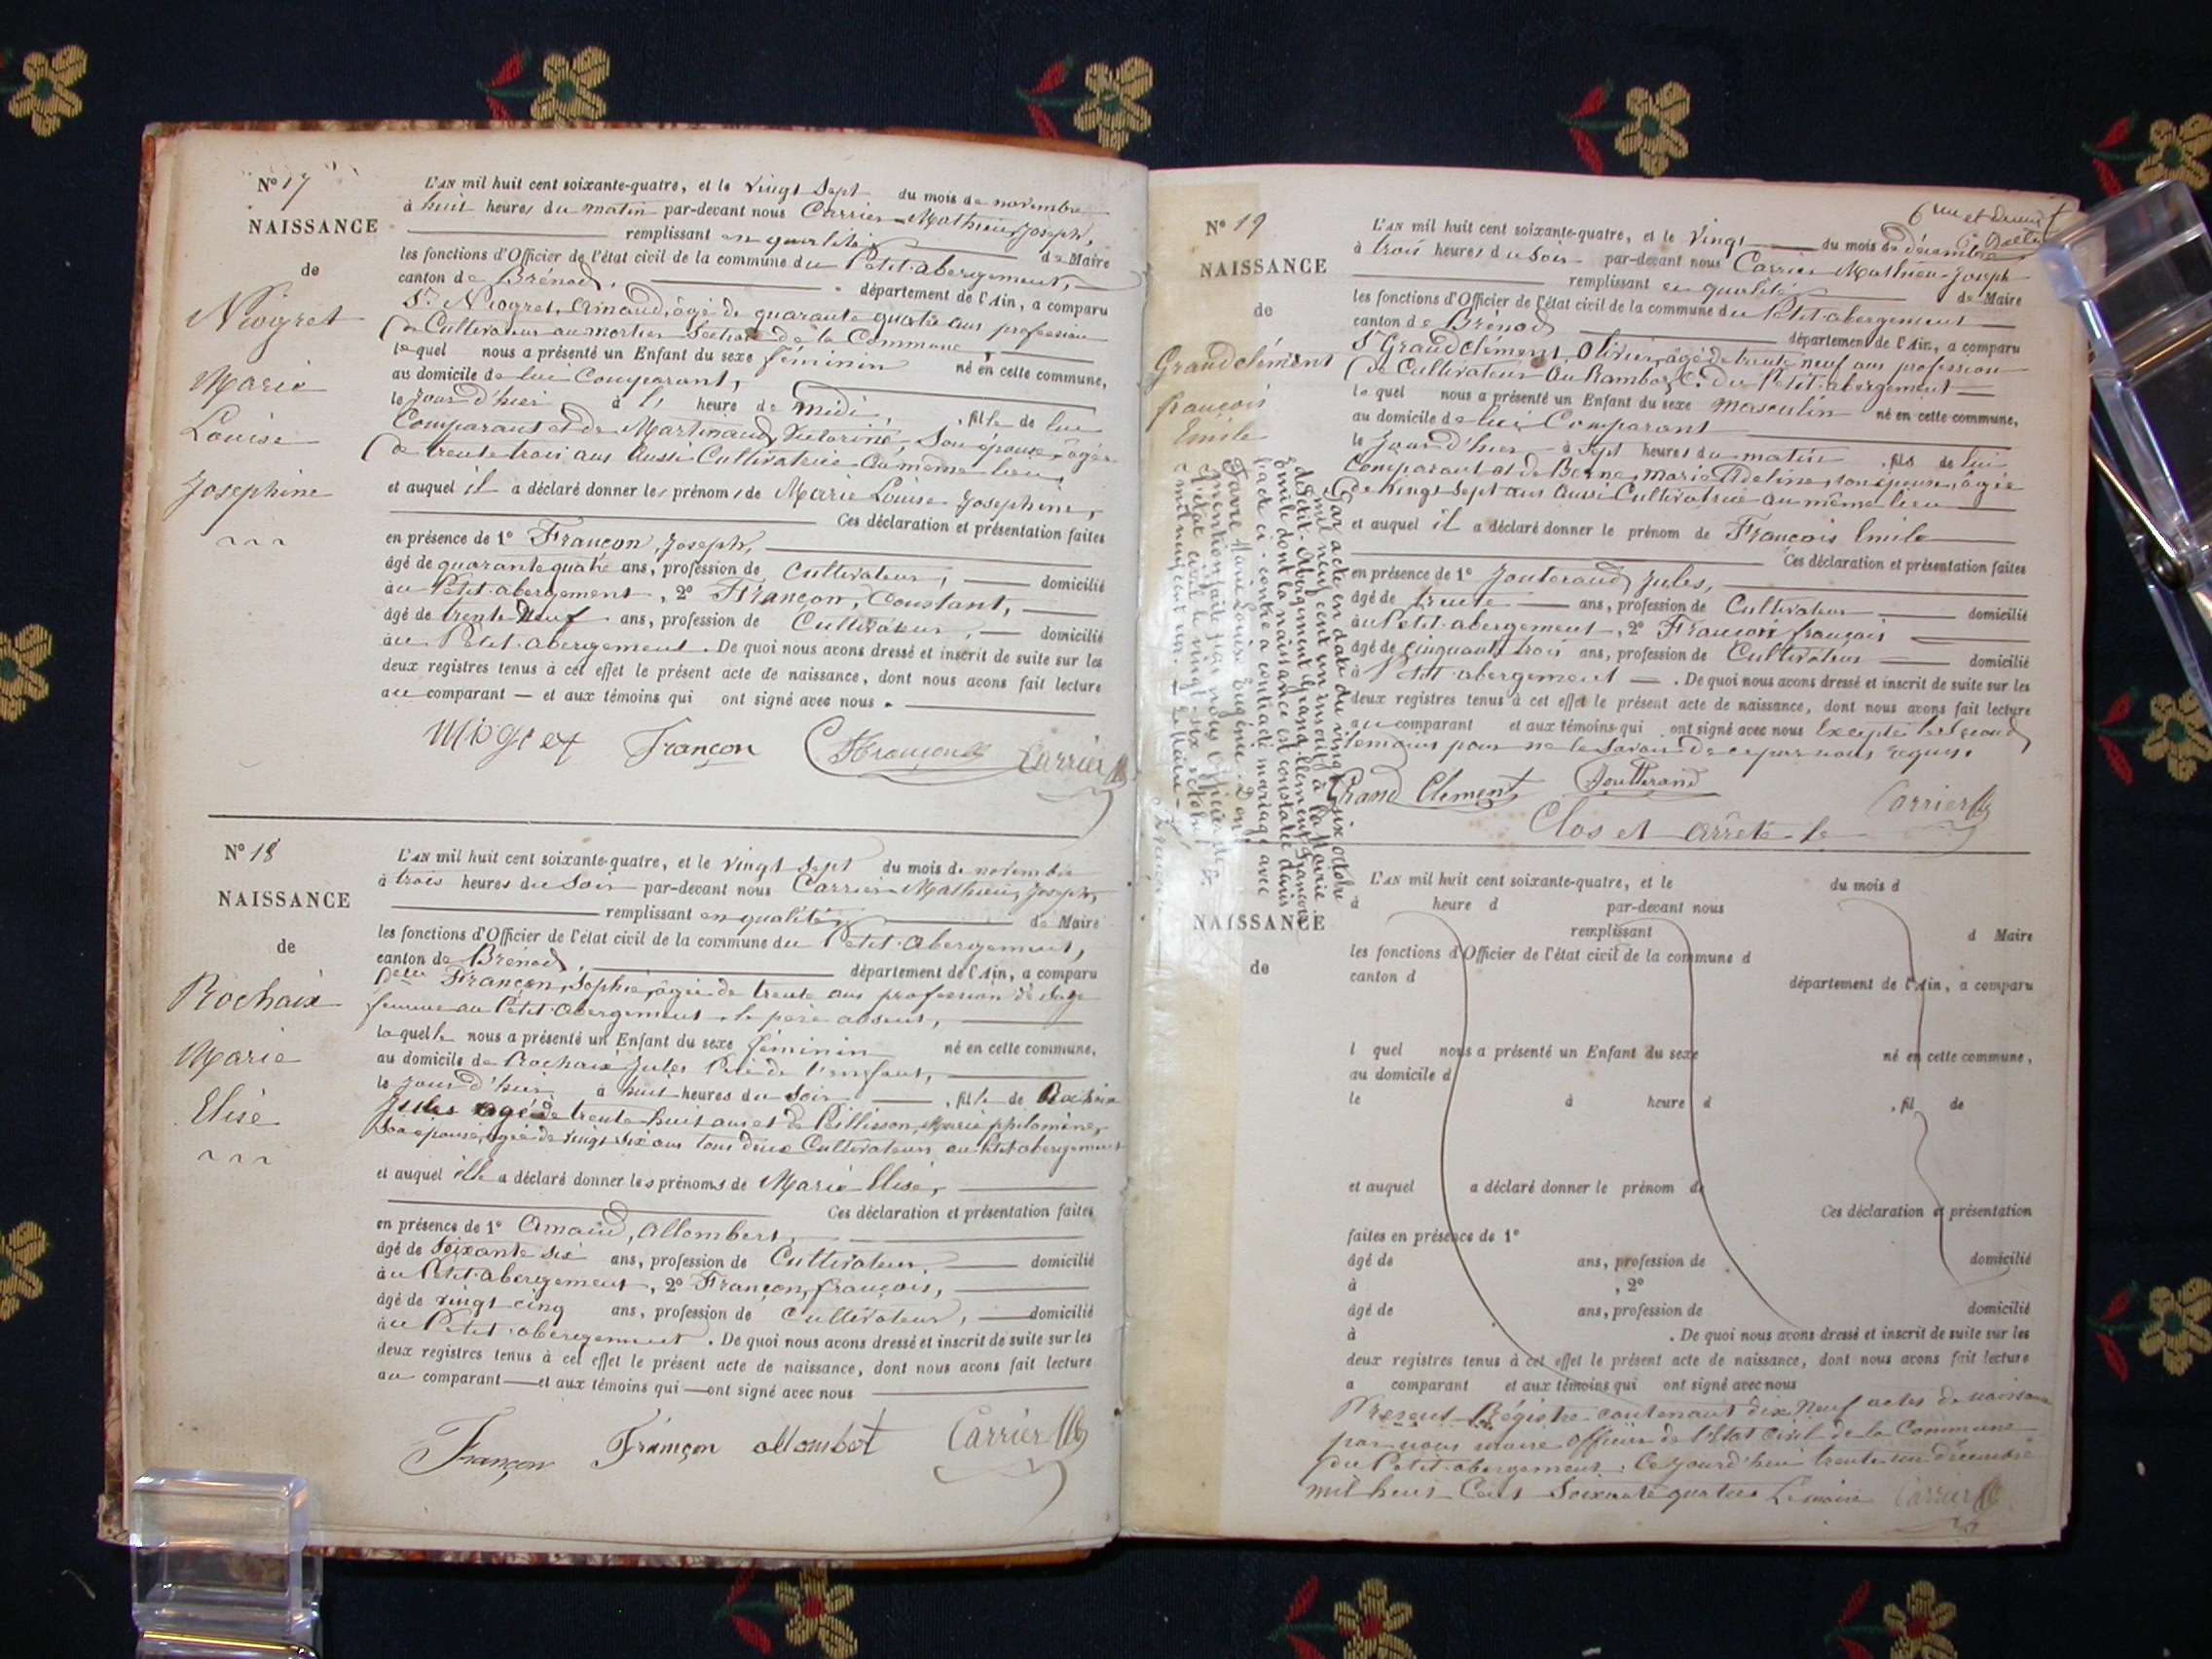 N° 17
NAISSANCE
de
Niogret
Marie
Louise
Josephine
L'AN mil huit cent soixante-quatre, et le vingt sept du mois de novembre
à huit heures du matin par-devant nous Carrier Mathieu Joseph,
remplissant en qualité de Maire
les fonctions d'Officier de l'état civil de la commune du Petit-abergement,
canton de Brénod, département de l'Ain, a comparu
Sr. Niogret, Amand, âgé de quarante quatre ans profession
de Cultivateur au mortier Section de la Commune,
lequel nous a présenté un Enfant du sexe féminin né en cette commune,
au domicile de lui Comparant,
le jour d'hier à l' heure de midi, fille de lui
Comparant et de Martinand, Victorine, Son épouse, âgée
de trente trois ans Aussi Cultivatrice au même lieu,
et auquel il a déclaré donner les prénoms de Marie Louise Josephine,
Ces déclaration et présentation faites
en présence de 1° Françon, Joseph,
âgé de quarante quatre ans, profession de Cultivateur, domicilié
au Petit-abergement, 2° Françon, Constant,
âgé de trente Neuf ans, profession de Cultivateur, domicilié
au Petit-abergement. De quoi nous avons dressé et inscrit de suite sur les
deux registres tenus à cet effet le présent acte de naissance, dont nous avons fait lecture
au comparant et aux témoins qui ont signé avec nous.
Niogret Françon C. Françon Carrier
N° 18
NAISSANCE
de
Rochaix
Marie
Elise
L'AN mil huit cent soixante-quatre, et le vingt sept du mois de novembre
à trois heures du Soir par-devant nous Carrier Mathieu, Joseph,
remplissant en qualité de Maire
les fonctions d'Officier de l'état civil de la commune du Petit-abergement,
canton de Brénod, département de l'Ain, a comparu
Delle Françon, Sophie, âgée de trente ans profession de Sage
femme au Petit-abergement, le père absent,
laquelle nous a présenté un Enfant du sexe féminin né en cette commune,
au domicile de Rochaix Jules Père de l'enfant,
le jour d'hier à huit heures du Soir, fille de Rochaix
Jules âgé de trente huit ans et de Peillisson, Marie philomine,
Son épouse, âgée de vingt six ans tous deux Cultivateurs au Petit abergement
et auquel elle a déclaré donner les prénoms de Marie Elise,
Ces déclaration et présentation faites
en présence de 1° Amand, Allombert,
âgé de Soixante six ans, profession de Cultivateur, domicilié
au Petit-abergement, 2° Françon, françois,
âgé de vingt cinq ans, profession de Cultivateur, domicilié
au Petit-abergement. De quoi nous avons dressé et inscrit de suite sur les
deux registres tenus à cet effet le présent acte de naissance, dont nous avons fait lecture
au comparant et aux témoins qui ont signé avec nous
Françon Françon allombert Carrier
N° 19
NAISSANCE
de
Grandclément
françois
Emile
L'AN mil huit cent soixante-quatre, et le Vingt du mois de décembre
à trois heures du Soir par-devant nous Carrier Mathieu-Joseph
remplissant en qualité de Maire
les fonctions d'Officier de l'état civil de la commune du Petit-abergement
canton de Brénod département de l'Ain, a comparu
Sr Grandclément, Olivier, âgé de trente neuf ans profession
de Cultivateur Au du Petit-abergement
lequel nous a présenté un Enfant du sexe masculin né en cette commune,
au domicile de lui Comparant
le Jour d'hier à Sept heures du matin, fils de lui
Comparant et de Berne, Marie Adeline, son épouse, âgée
de Vingt Sept ans Aussi Cultivatrice au même lieu
et auquel il a déclaré donner le prénom de François Emile
Ces déclaration et présentation faites
en présence de 1° Joulerand, Jules,
âgé de trente ans, profession de Cultivateur domicilié
au Petit-abergement, 2° Françon françois
âgé de cinquante trois ans, profession de Cultivateur domicilié
à Petit-abergement. De quoi nous avons dressé et inscrit de suite sur les
deux registres tenus à cet effet le présent acte de naissance, dont nous avons fait lecture
au comparant et aux témoins qui ont signé avec nous Excepté le Second
témoins pour ne le Savoir de ce par nous requis.
Grand Clement Carrier
Clos et Arrêté le
Par acte en date du vingt six octobre
mil neuf cent un inscrit à la Mairie
de Petit-Abergement, Grandclément François
Emile dont la naissance est constatée dans
l'acte ci-contre a contracté mariage avec
Favre Marie Louise Eugénie. Dont
mention faite par nous Officier de
l'état civil le vingt-six octobre
mil neuf cent un. Le Maire
NAISSANCE
de
L'AN mil huit cent soixante-quatre, et le du mois d
à heure d par-devant nous
remplissant d Maire
les fonctions d'Officier de l'état civil de la commune d
canton d département de l'Ain, a comparu
l quel nous a présenté un Enfant du sexe né en cette commune,
au domicile d
le à heure d , fil de
et auquel a déclaré donner le prénom de
Ces déclaration et présentation
faites en présence de 1°
âgé de ans, profession de domicilié
à , 2°
âgé de ans, profession de domicilié
à . De quoi nous avons dressé et inscrit de suite sur les
deux registres tenus à cet effet le présent acte de naissance, dont nous avons fait lecture
a comparant et aux témoins qui ont signé avec nous
Present Régistre contenant dix Neuf actes de naissance
par nous maire officier de l'Etat Civil de la Commune
du Petit-abergement. Cejourd'hui trente un décembre
mil huit Cent Soixante quatre Le maire Carrier